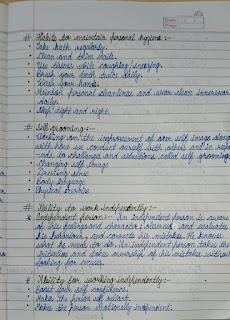 # Habits to maintain personal hygiene :-
• Take bath regularly.
• Clean and trim nails.
• Use tissues while coughing/sneezing.
• Brush your teeth twice daily.
• Wash your hands.
• Maintain personal cleanliness and wear clean innerwear
daily.
• Sleep tight and right.
# Self grooming :-
Working on the improvement of our self image along
with how we conduct ourself with others and in resp
-onds to challenges and situations called self grooming.
• Changing self image
• Dressing sense
• Body language
• Physical exercise
# Ability to work independently :-
• Independent person :- An independent person is aware
of his feelings and character, observes and evaluate
his behaviour and corrects his mistakes. He knows
what he needs to do. An independent person takes the
initiative and takes ownership of his mistakes without
looking for excuses.
# Ability for working independently :-
• Boost your self confidence.
• Make the person self reliant.
• Makes the person emotionally independent.